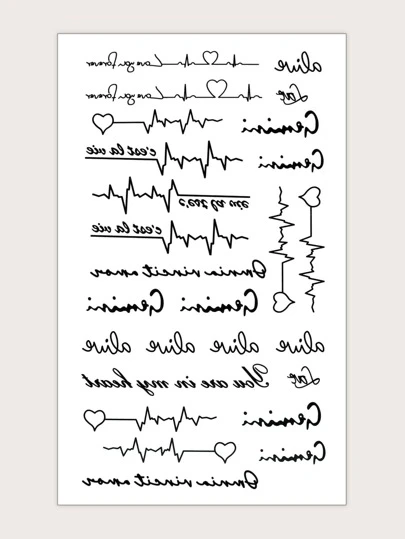 alive Love you Forever
Love Love you Forever
Gemini
Gemini c'est la vie
c'est la vie
Omnia vincit amor
Gemini Gemini
alive alive alive alive
Love You are in my heart
Gemini
Gemini
Omnia vincit amor